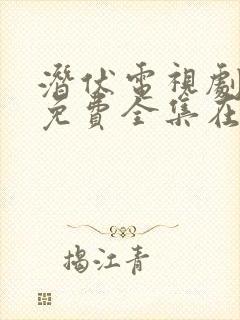 潛伏電視劇
免費全集在
揭江青